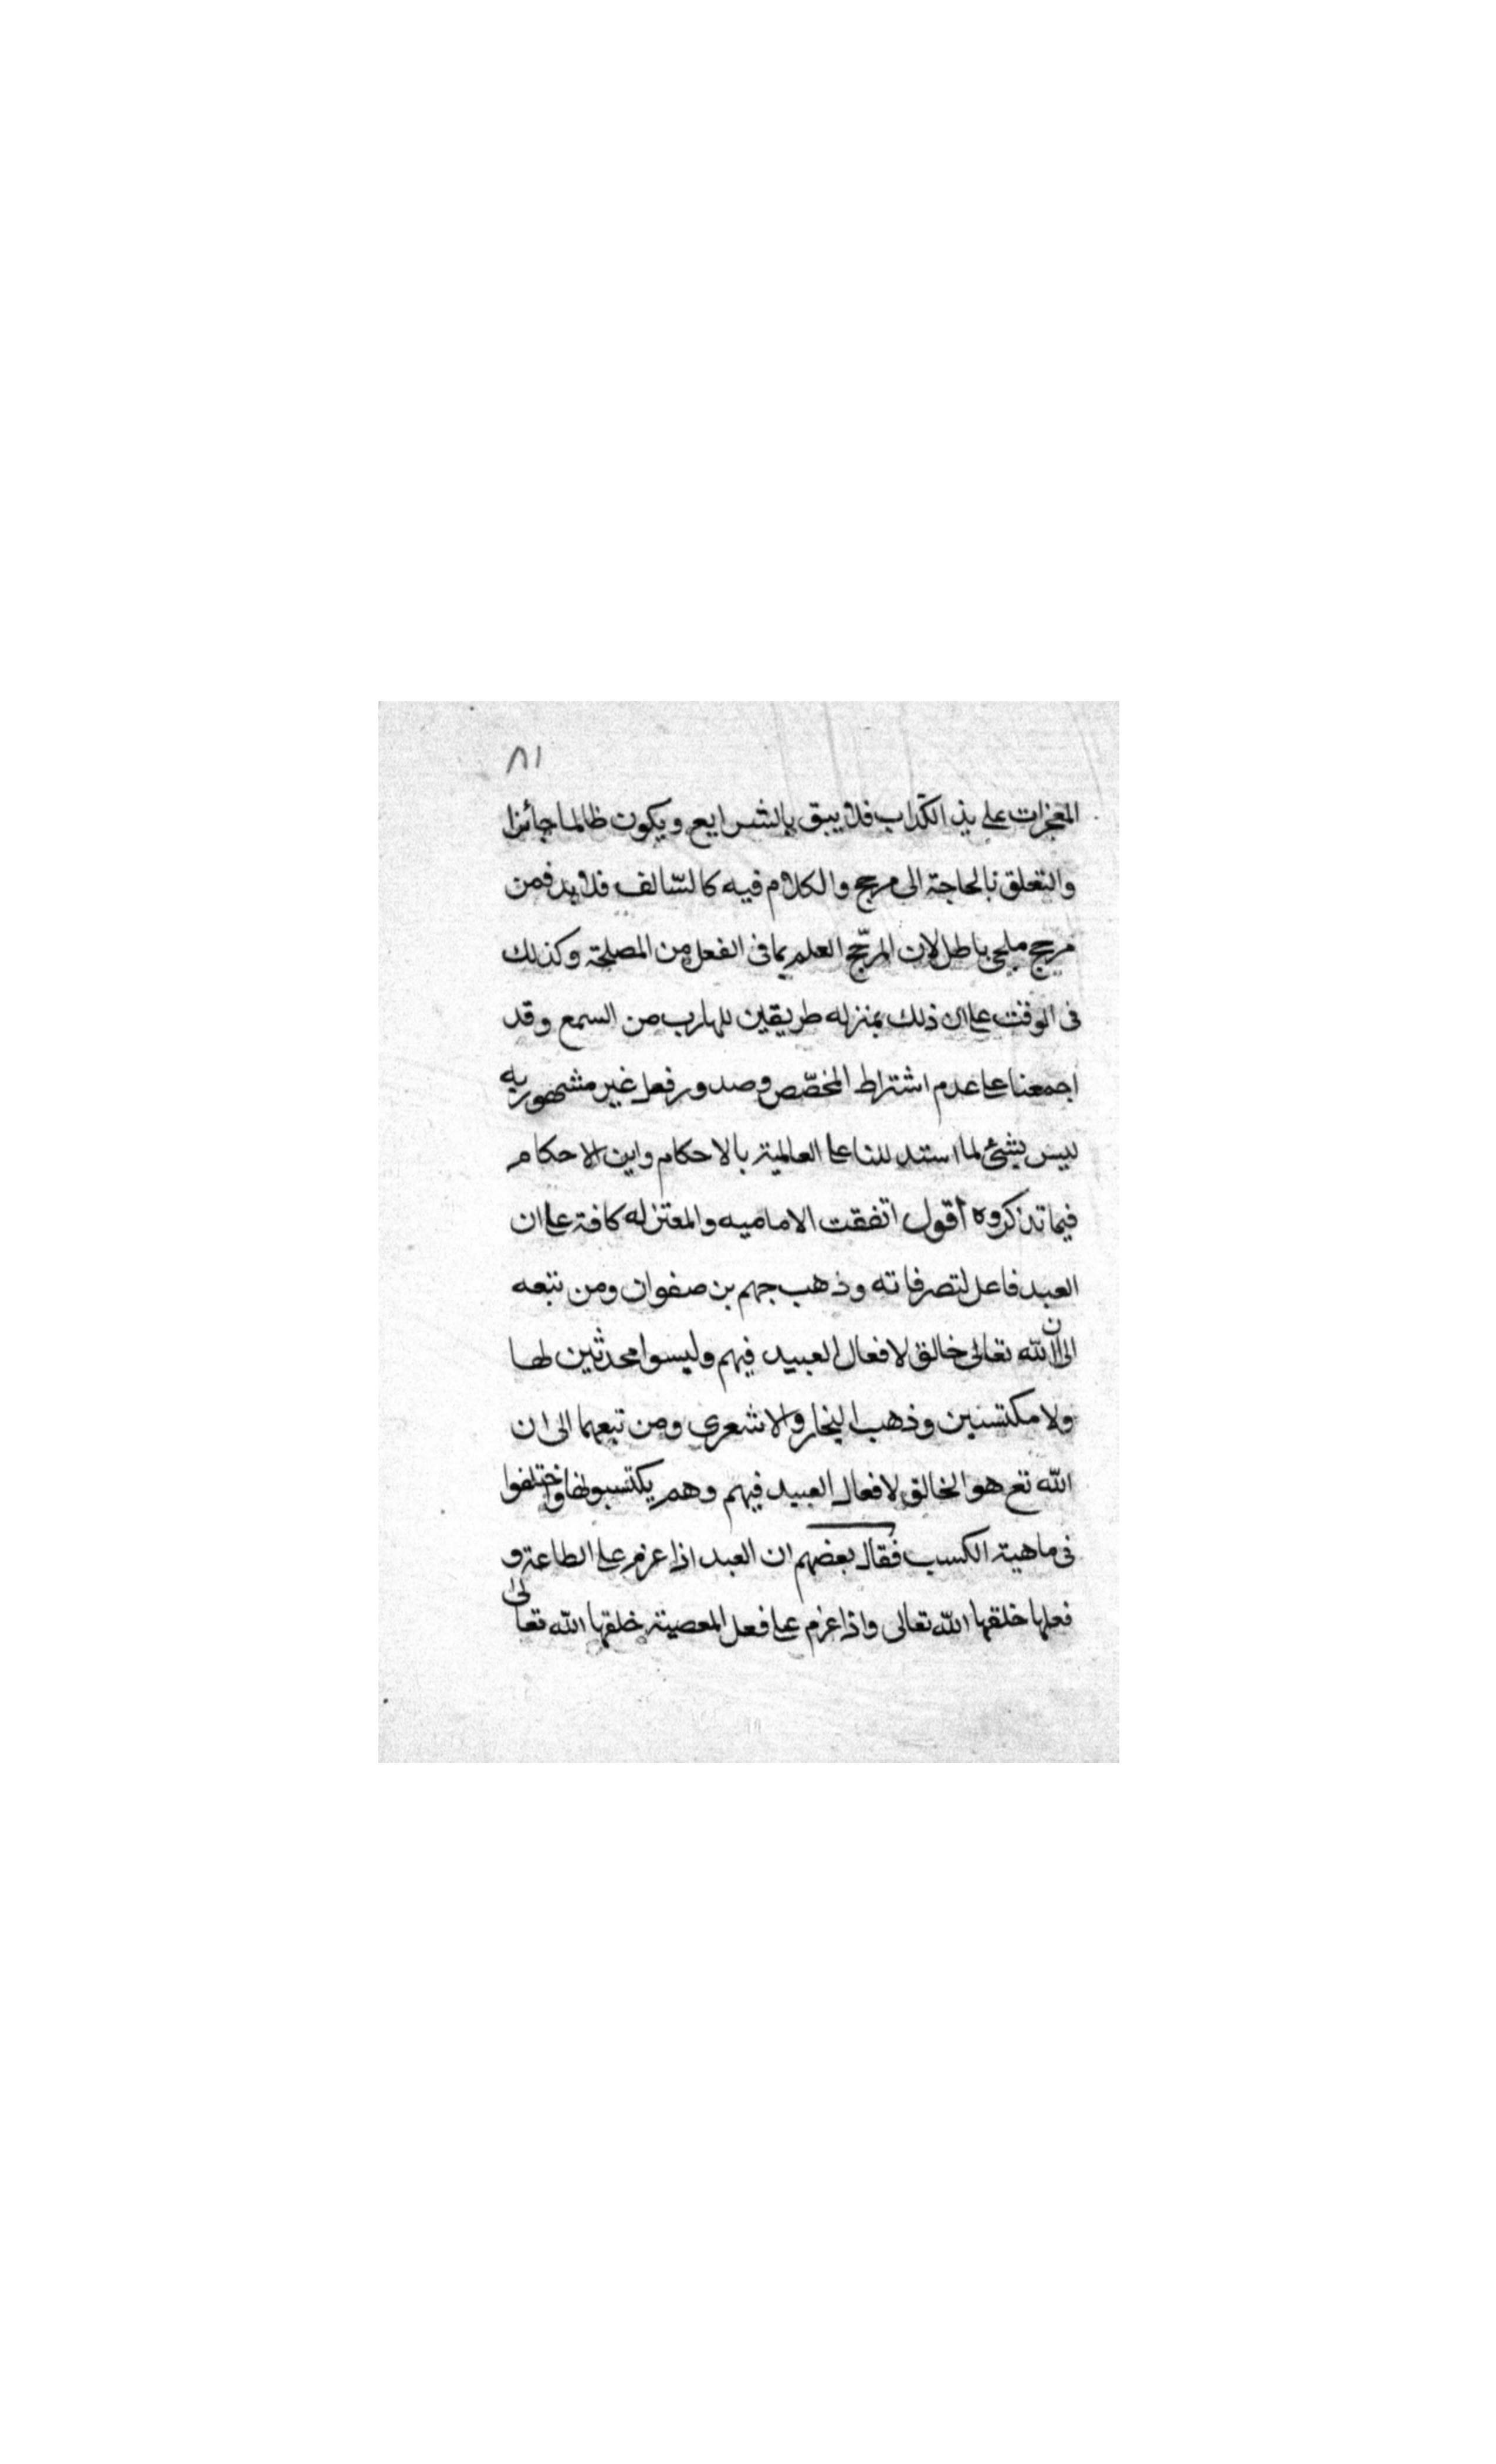 ٨١
المعجزات على يد الكذاب فلا يبق بالشرايع ويكون ظالما جائزا
والتعلق بالحاجة الى مرجح والكلام فيه كالسالف فلابد فمن
مرجح ملجى باطل لان المرجّح العلم بما فى الفعل من المصلحة وكذلك
فى الوقت على ان ذلك بمنزله طريقين للهارب من السمع وقد
اجمعنا على عدم اشتراط المخصّص وصدور فعل غير مشهور به
ليس بشئ لما استد للنا على العالمية بالاحكام واين الاحكام
فيما تذكروه أقول اتفقت الاماميه والمعتزله كافة على ان
العبد فاعل لتصرفاته وذهب جهم بن صفوان ومن تبعه
الى ان الله تعالى خالق لافعال العبيد فيهم وليسوا محدثين لها
ولا مكتسبين وذهب النجار والاشعرى ومن تبعهما الى ان
الله تع هو الخالق لافعال العبيد فيهم وهم يكتسبونها واختلفوا
فى ماهية الكسب فقال بعضهم ان العبد اذا عزم على الطاعة و
فعلها خلقها الله تعالى واذا عزم على فعل المعصية خلقها الله تعالى